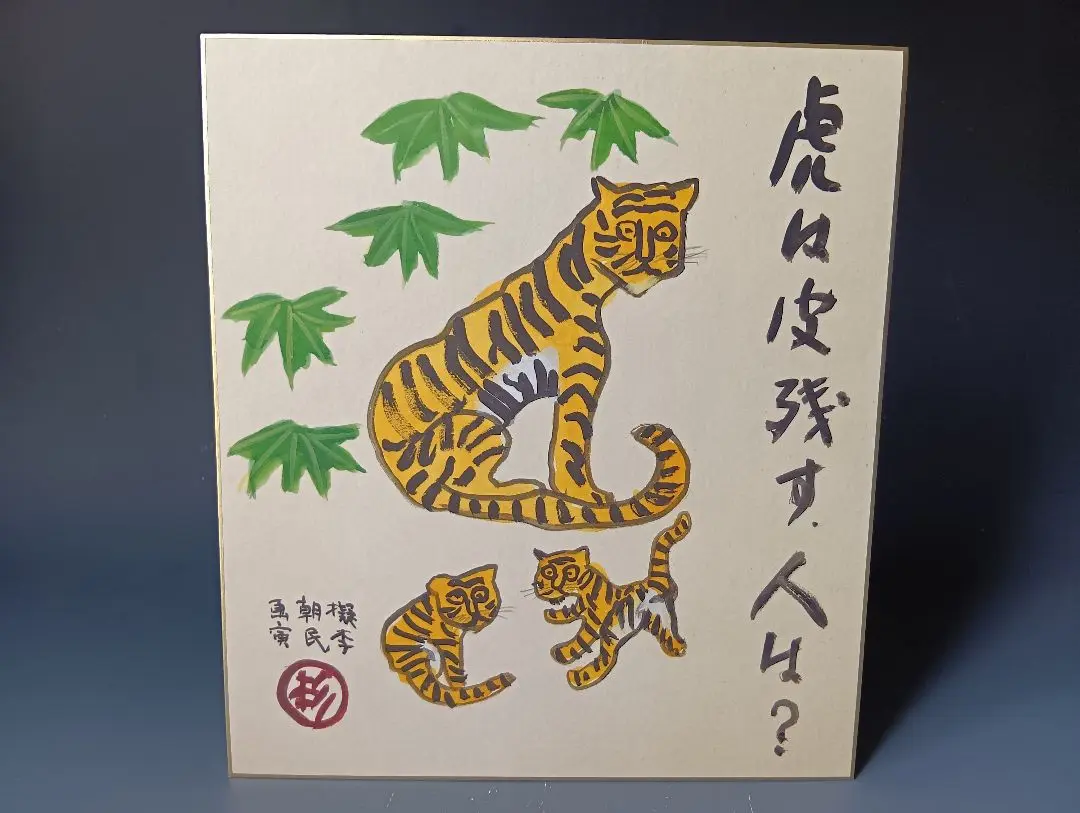 虎は皮残す.人は?
擬李
朝民
画寅